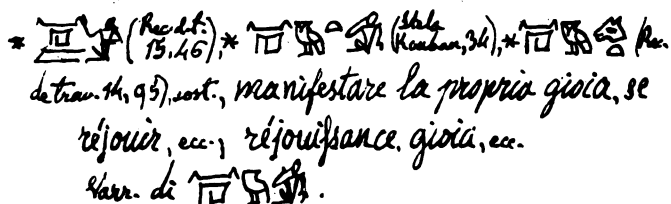 * (Rec. d. t. 15, 46), * (Stele Kouban, 34), * (Rec.
de trav. 14, 95), sost., manifestare la propria gioia, se
réjouir, ecc.; réjouissance, gioia, ecc.
Varr. di .